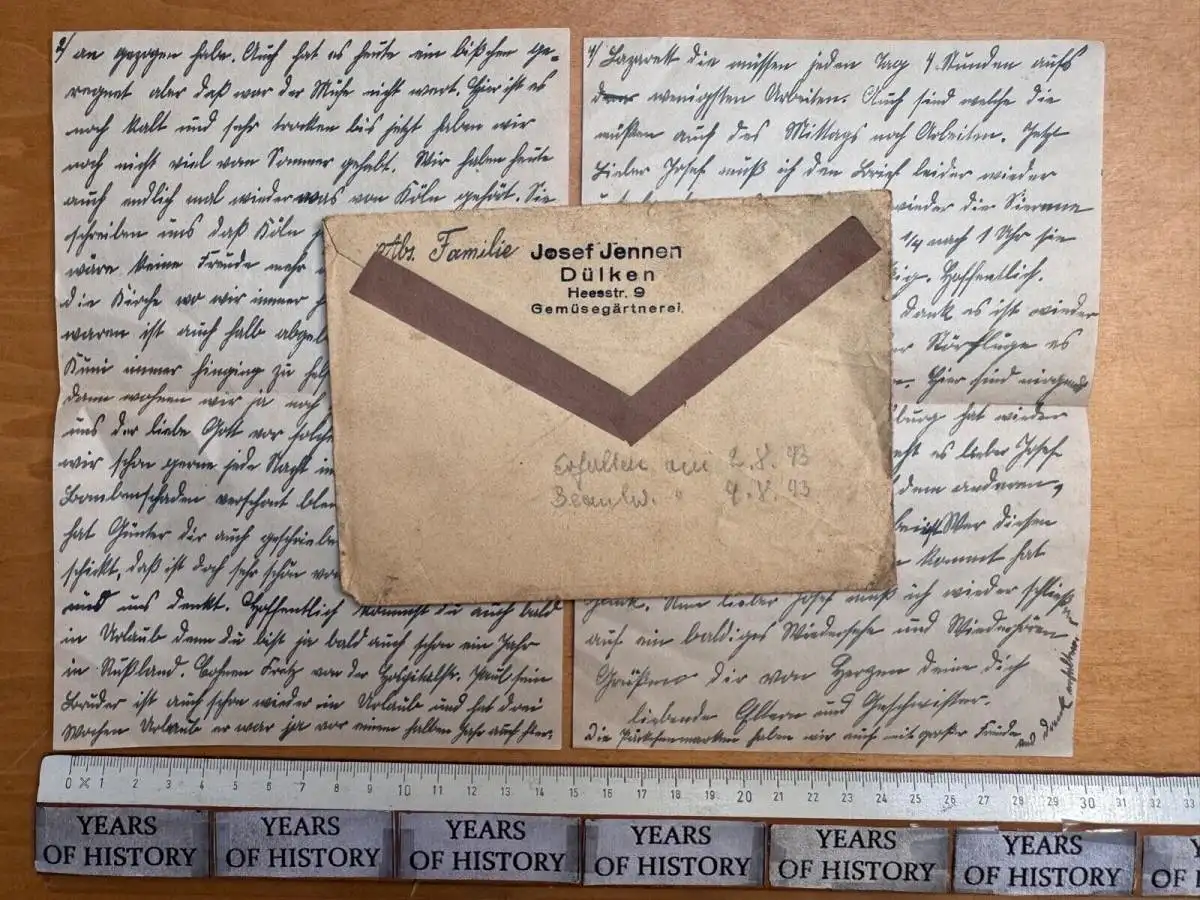 2/ an gezogen habe. Auch hat es heute ein bißchen ge-
regnet aber daß war der Mühe nicht wert. Hier ist es
noch kalt und sehr trocken bis jetzt haben wir
noch nicht viel vom Sommer gehabt. Wir haben heute
auch endlich mal wieder was von Köln gehört. Sie
schreiben uns daß Köln
wäre keine Freude mehr
die Kirche wo wir immer
waren ist auch halb abge
Küni immer hinging zu
dann wohnen wir ja noch
uns der liebe Gott vor solche
wir schon gerne jede Nacht in
Bombenschaden verschont blei
hat Günter dir auch geschriebe
schickt, daß ist doch sehr schön vo
und uns denkt. Hoffentlich kommst du auch bald
in Urlaub denn du bist ja bald auch schon ein Jahr
in Rußland. Fritz von der Hospitalstr. Paul sein
Bruder ist auch schon wieder in Urlaub und hat drei
Wochen Urlaub er war ja vor einem halben Jahr auch hier.
4/ Lazarett die müssen jeden Tag 4 Stunden aufs
wenigsten Arbeiten. Auch sind welche die
müßten auch des Mittags noch Arbeiten. Jetzt
Lieber Josef muß ich den Brief leider wieder
wieder die Sierene
1/4 nach 1 Uhr sie
ig. Hoffentlich.
dank es ist wieder
Störfluge es
Hier sind nirgends
burg hat wieder
eht es lieber Josef
dem anderen,
Wer diesen
kommt hat
Nun lieber Josef muß ich wieder schließen
auf ein baldiges Wiedersehe und Wiederhören
Grüßen dir von Herzen deine dich
liebende Eltern und Geschwister.
Die Päckchenmarken haben wir auch mit großer Freude
und Dank erhalten.
Abs. Familie Josef Jennen
Dülken
Heesstr. 9
Gemüsegärtnerei.
Erhalten am 2.8.43
Beantw. " 4.8.43
0 1 2 3 4 5 6 7 8 9 10 11 12 13 14 15 16 17 18 19 20 21 22 23 24 25 26 27 28 29 30 31 32 33
YEARS OF HISTORY
YEARS OF HISTORY
YEARS OF HISTORY
YEARS OF HISTORY
YEARS OF HISTORY
YEARS OF HISTORY
Y
OF H